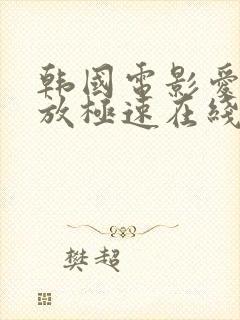 韩国电影爱
放极速在线
樊超